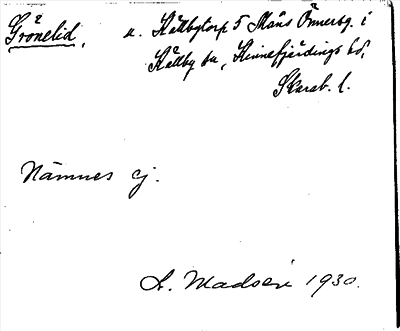 Grönelid, u. Källbytorp 5 Måns Önnersg. i
Källby sn, Kinnefjärdings hd,
Skarab. l.
Nämnes ej.
L. Madsén 1930.